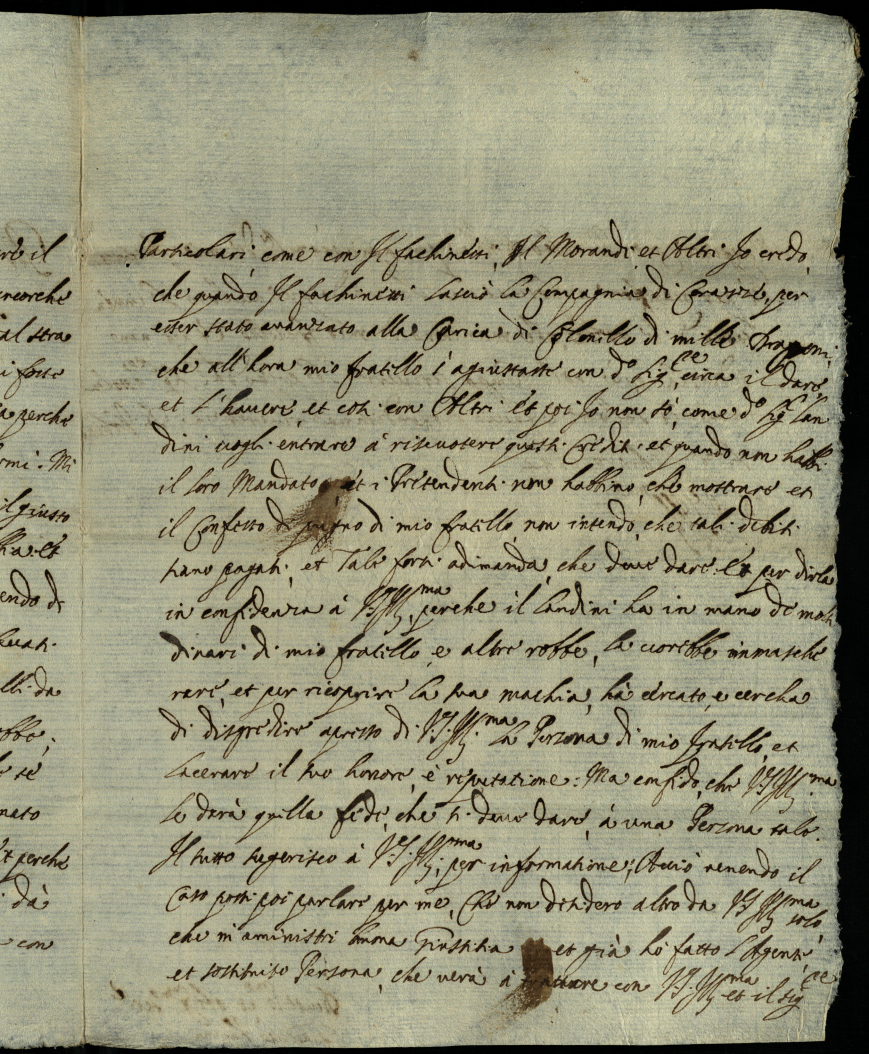 re il
ancorche
al stra
i fosse
a perche
rmi. Mi
il giusto
ha. et
endo di
li da
obbe;
se
nato
et perche
. dà
con
Particolari come con Il fachinetti, Il Morandi, et Altri Io credo,
che quando Il fachinetti lasciò la Compagnia di Corazze, per
esser stato avanzato alla Carica di Colonello di mille Dragoni,
che all'hora mio fratello s'agiustasse con do. Sigce. circa il dare,
et l'havere, et così con Altri et poi Io non sò, come do. Sig. Lan
dini vogli entrare à riscuotere questi Crediti. et quando non habbi
il loro Mandato, et i Pretendenti non habbino, che mostrare et
il Confesso di pugno di mio fratello, non intendo, che tali debiti
siano pagati, et Tale forsi adimanda, che deve dare. et per dirla
in confidenza à V.S. Illma. perche il Landini ha in mano de molti
dinari di mio fratello, e altre robbe, la vorebbe inmasche
rare, et per ricoprire la sua machia, hà cercato, e cercha
di discredire apresso di V.S. Illma. la Persona di mio fratello, et
lacerare il suo honore, è riputatione: Ma confido, che V.S. Illma.
le darà quella fede, che si deve dare, à una Persona tale.
Il tutto sugerisco à V.S. Illma. per informatione; Acciò venendo il
Caso possi poi parlare per me, Che non desidero altro da V.S. Illma. solo
che m'aministri buona Giustitia et già hò fatto l'Agente,
et sostituito Persona, che verà à trattare con V.S. Illma. et il Sigce.